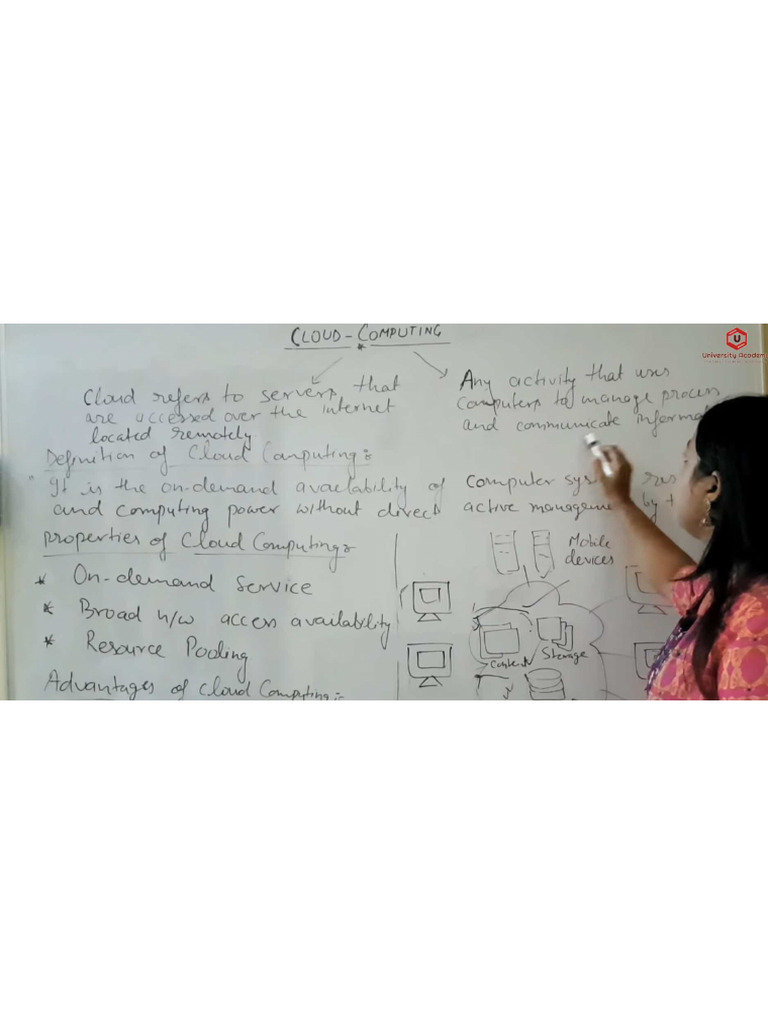 CLOUD-COMPUTING
University Academ
Cloud refers to servers that
are accessed over the internet
located remotely
Any activity that uses
computers to manage process
and communicate informat
Definition of Cloud Computing:
It is the on-demand availability of computer sys
and computing power without direct active manageme by t
properties of Cloud Computing
* On-demand Service
* Broad n/w access availability
* Resource Pooling
Advantages of Cloud Computing:-
Mobile
devices
Content
Storage